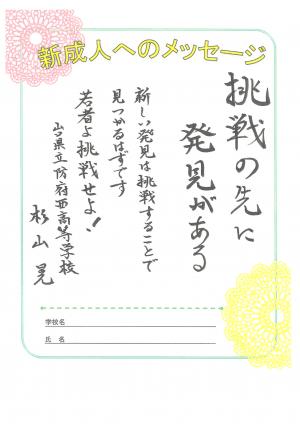 新成人へのメッセージ
挑戦の先に
発見がある
新しい発見は挑戦することで
見つかるはずです
若者よ挑戦せよ!
山口県立防府西高等学校
杉山 晃
学校名
氏 名